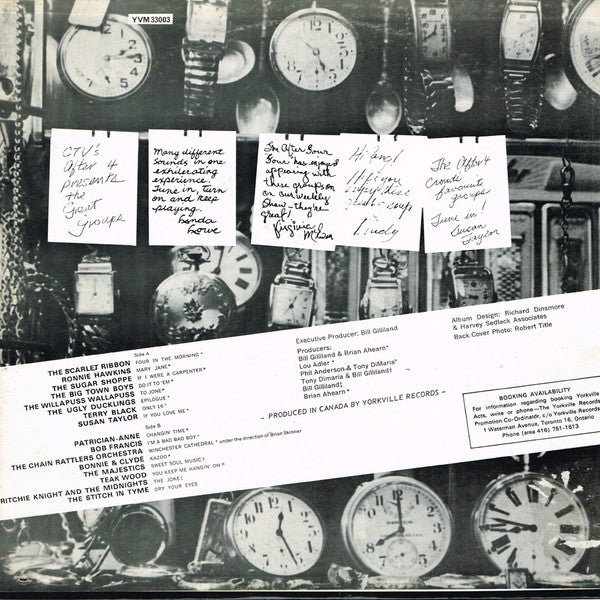 YVM 33003
CTV's
After 4
presents
the
Great
Groups
Many different
sounds in one
exhilerating
experience.
Tune in, turn
on and keep
playing.
Linda
The After Four
Four has enjoyed
appearing with
these groups on
our weekly
Show - they're
great!
Virginia
Hi Gang!
Hope you
enjoy disc
The After 4
crowds
favourite
groups
Tune in!
Susan
Taylor
Side A
THE SCARLET RIBBON FOUR IN THE MORNING*
RONNIE HAWKINS MARY JANE*
THE SUGAR SHOPPE IF I WERE A CARPENTER*
THE BIG TOWN BOYS DO IT TO 'EM
THE WILLAPUSS WALLAPUSS TO JONE
THE UGLY DUCKLINGS EPILOGUE
TERRY BLACK ONLY 16
SUSAN TAYLOR IF YOU LOVE ME
Side B
PATRICIAN-ANNE CHANGIN' TIME
BOB FRANCIS I'M A BAD BAD BOY
THE CHAIN RATTLERS ORCHESTRA WINCHESTER CATHEDRAL * under the direction of Brian Skinner
BONNIE & CLYDE KAZOO
THE MAJESTICS SWEET SOUL MUSIC
TEAK WOOD YOU KEEP ME HANGIN' ON
RITCHIE KNIGHT AND THE MIDNIGHTS THE JOKE
THE STITCH IN TYME DRY YOUR EYES
Executive Producer: Bill Gilliland
Producers:
Bill Gilliland & Brian Ahearn*
Lou Adler
Phil Anderson & Tony DiMaria
Tony Dimaria & Bill Gilliland
Bill Gilliland
Brian Ahearn
- PRODUCED IN CANADA BY YORKVILLE RECORDS -
Album Design: Richard Dinsmore
& Harvey Sedlack Associates
Back Cover Photo: Robert Title
BOOKING AVAILABILITY
For information regarding booking Yorkville
Acts, write or phone—The Yorkville Records
Promotion Co-Ordinator, c/o Yorkville Records
1 Wiseman Avenue, Toronto 16, Ontario
Phone (area 416) 751-1613
HAMILTON